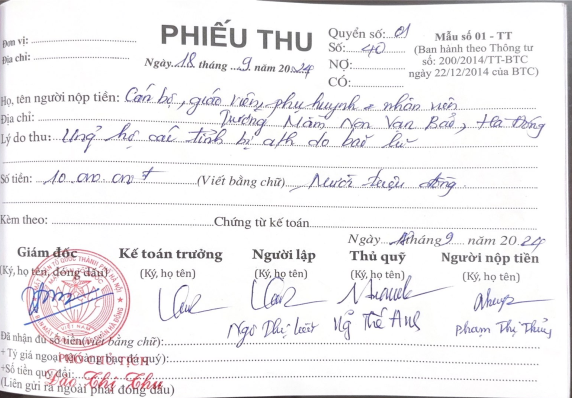 Đơn vị:
Địa chỉ:
PHIẾU THU
Ngày 18 tháng 9 năm 2024
Quyển số: 01
Số: 40
NỢ:
CÓ:
Mẫu số 01 - TT
(Ban hành theo Thông tư
số: 200/2014/TT-BTC
ngày 22/12/2014 của BTC)
Họ, tên người nộp tiền: Cán bộ, giáo viên, phụ huynh + nhân viên
Địa chỉ: Trường Mầm Non Vạn Bảo, Hà Đông
Lý do thu: Ủng hộ các tỉnh bị ảh do bão lũ
Số tiền: 10 000 000đ (Viết bằng chữ) Mười triệu đồng
Kèm theo: Chứng từ kế toán
Ngày 18 tháng 9 năm 2024
Giám đốc Kế toán trưởng Người lập Thủ quỹ Người nộp tiền
(Ký, họ tên, đóng dấu) (Ký, họ tên) (Ký, họ tên) (Ký, họ tên) (Ký, họ tên)
VIỆT NAM
Ngô Thị Ng Thế Anh Phạm Thị Thủy
Đã nhận đủ số tiền (viết bằng chữ):
+Tỷ giá ngoại tệ (vàng bạc đá quý):
PHÓ CHỦ TỊCH
+Số tiền quy đổi:
Đào Thị Thu
(Liên gửi ra ngoài phải đóng dấu)